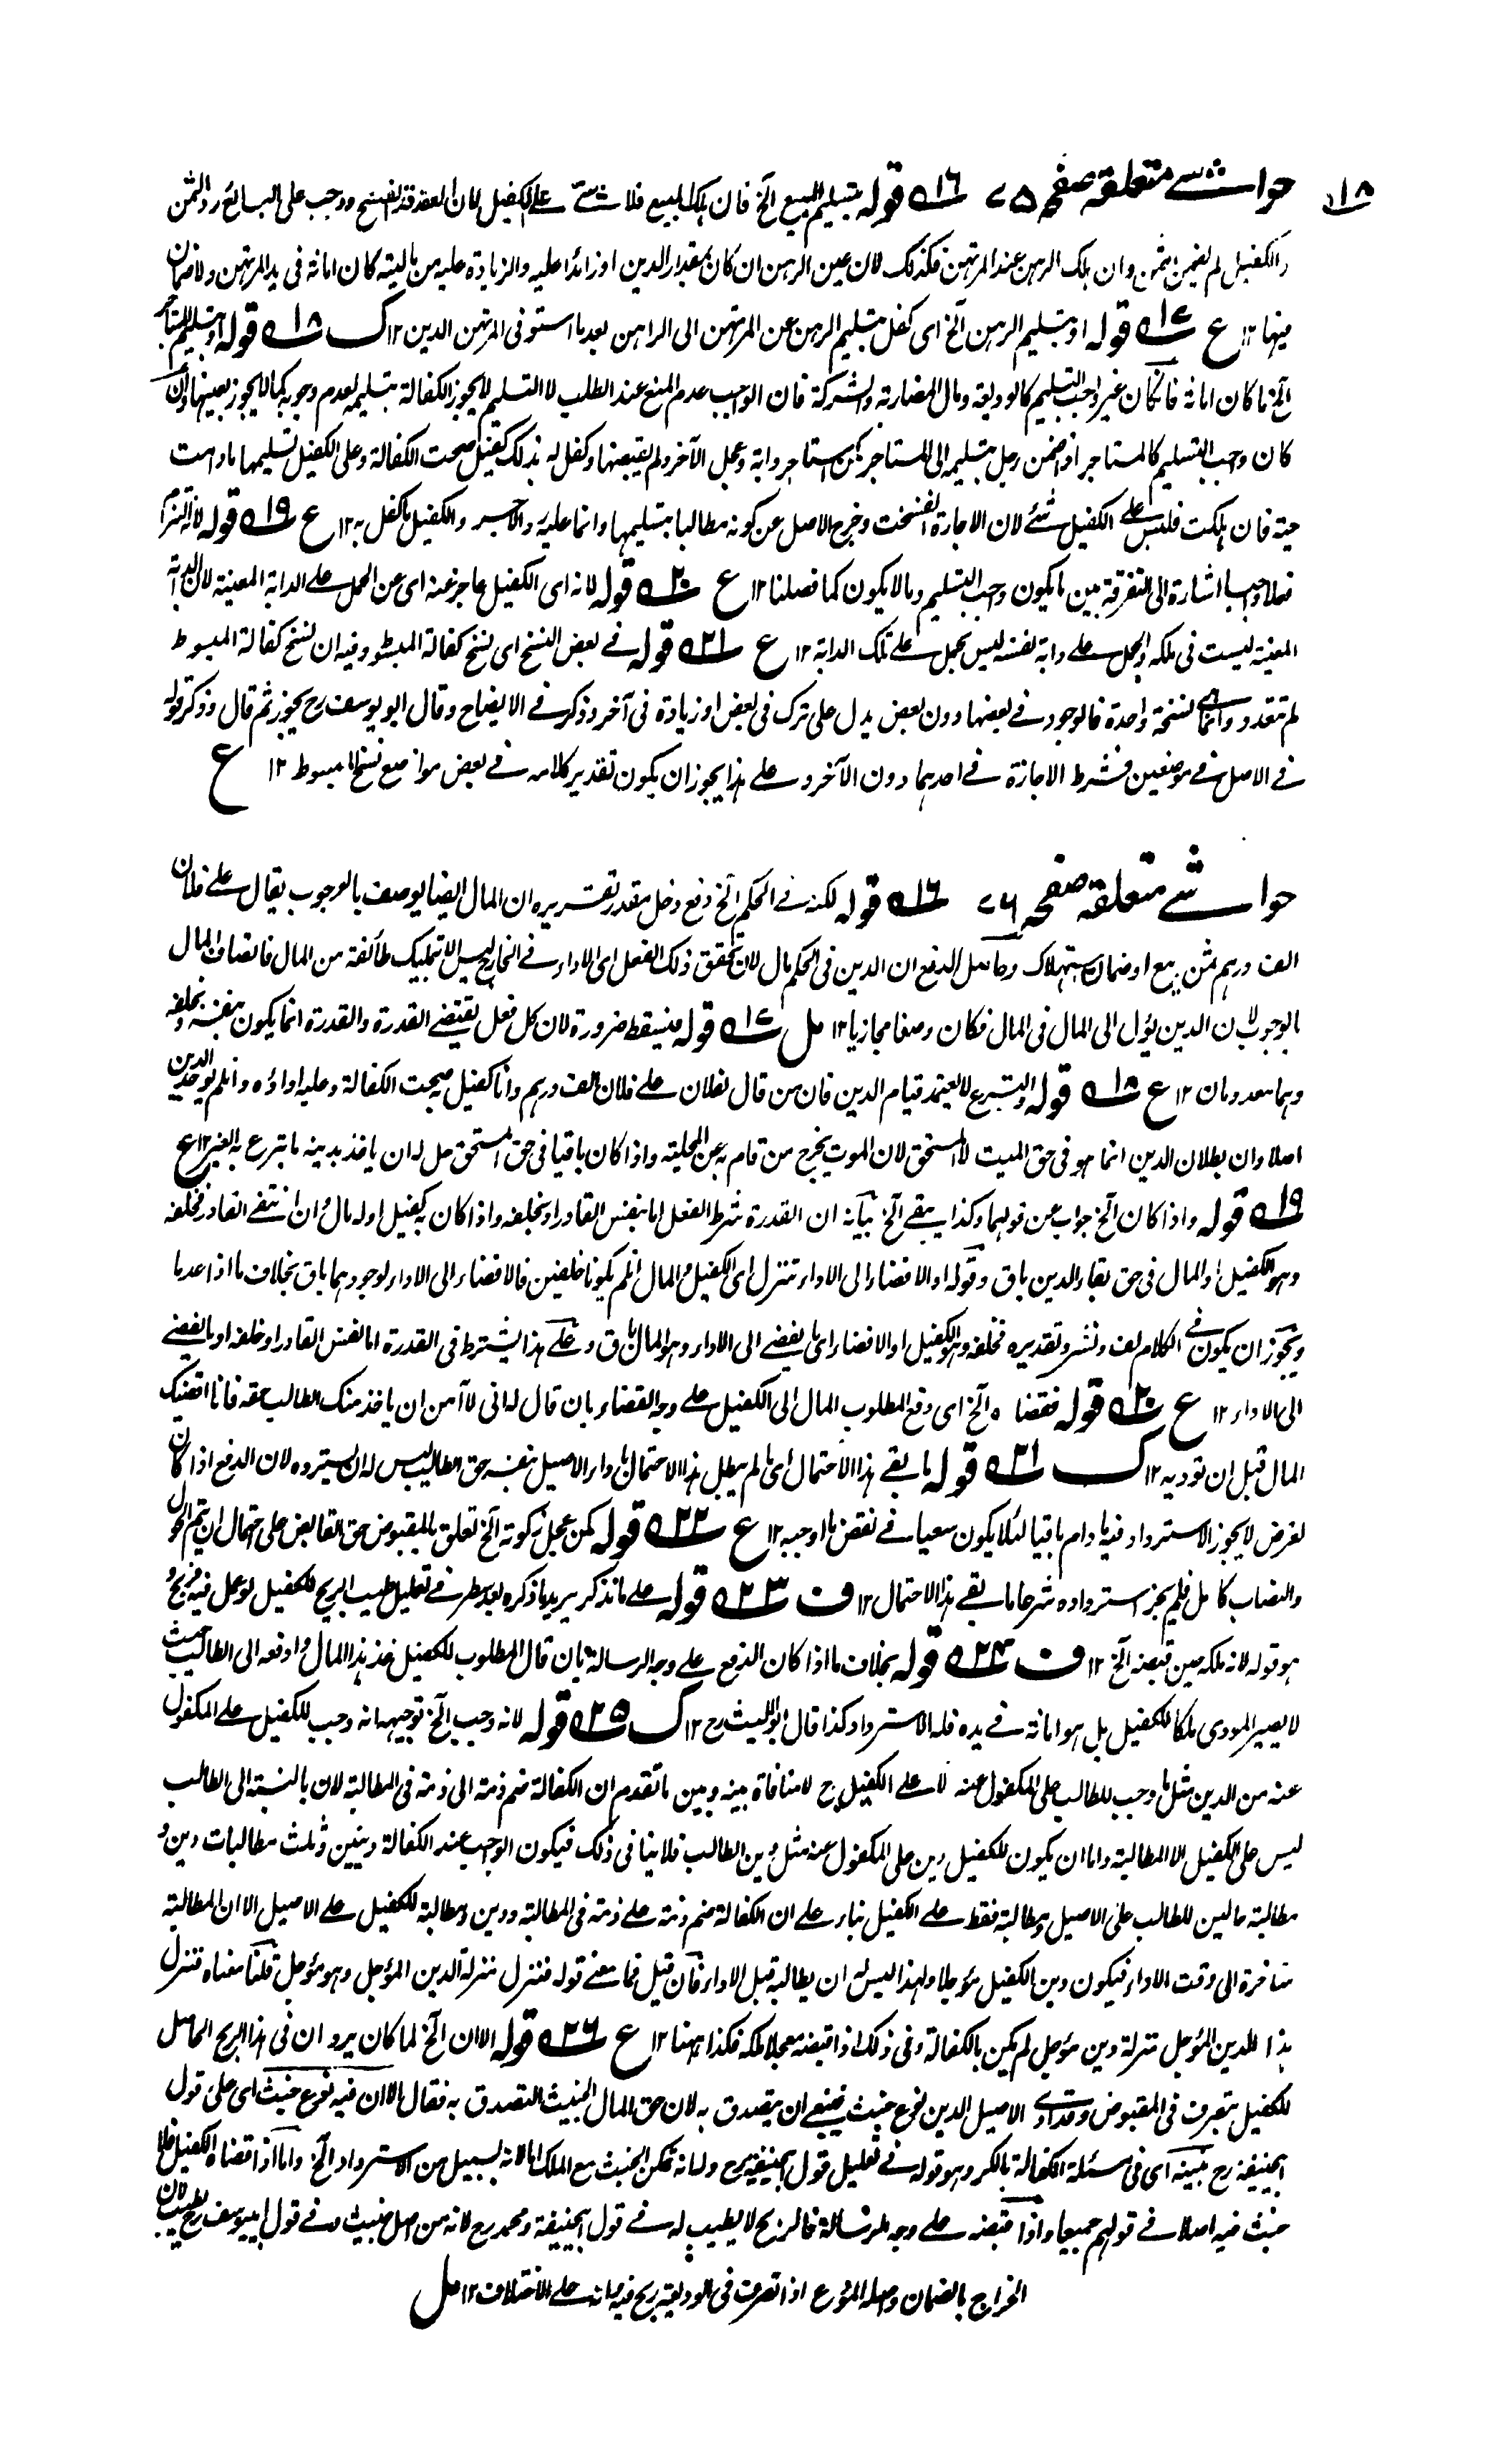 ١١٨
حواشی متعلقه صفحه ٧٥ ١٦ قوله بتسليم المبيع الخ فان هلك المبيع فلا شئ على الكفيل لان العقد قد انفسخ ووجب على البائع رد الثمن
والكفيل لم يضمن الثمن وان هلك الرهن عند المرتهن فكذلك لان عين الرهن ان كان بمقدار الدين او زائدا عليه والزيادة عليه من ماليته كان امانة فى يد المرتهن ولا ضمان
فيها ١٢ ع ١٧ قوله او بتسليم الرهن الخ اى كفل بتسليم الرهن عن المرتهن الى الراهن بعد ما استوفى المرتهن الدين ١٢ ك ١٨ قوله او بتسليم المستاجر
الخ ما كان امانة فان كان غير واجب التسليم كالوديعة ومال المضاربة والشركة فان الواجب عدم المنع عند الطلب لا التسليم لا يجوز الكفالة بتسليمه لعدم وجوبه كما لا يجوز بعينها وان
كان واجب التسليم كالمستاجر اذا ضمن رجل بتسليمه الى المستاجر كمن استاجر دابة وعجل الآخر ولم يقبضها وكفل له بذلك كفيل صحت الكفالة وعلى الكفيل تسليمها مادامت
حية فان هلكت فليس على الكفيل شئ لان الاجارة انفسخت وخرج الاصل عن كونه مطالبا بتسليمها وانما عليه رد الاجر والكفيل ما كفل به ١٢ ع ١٩ قوله لانه التزم
فعلا واجبا اشارة الى التفرقة بين ما يكون واجب التسليم وما لا يكون كما فصلنا ١٢ ع ٢٠ قوله لانه اى الكفيل عاجز عنه اى عن الحمل على الدابة المعينة لان الدابة
المعينة ليست فى ملكه والحمل على دابة نفسه ليس بحمل على تلك الدابة ١٢ ع ٢١ قوله فى بعض النسخ اى نسخ كفالة المبسوط وفيه ان نسخ كفالة المبسوط
لم تتعدد وانما هى نسخة واحدة فالوجود فى بعضها دون بعض يدل على ترك فى بعض او زيادة فى آخر وذكر فى الايضاح وقال ابو يوسف رح يجوز ثم قال وذكر قوله
فى الاصل فى موضعين فشرط الاجازة فى احدهما دون الآخر وعلى هذا يجوز ان يكون تقدير كلامه فى بعض مواضع نسخ المبسوط ١٢ ع
حواشی متعلقه صفحه ٧٦ ١٦ قوله لكنه فى الحكم الخ دفع دخل مقدر تقريره ان المال ايضا يوصف بالوجوب يقال على فلان
الف درهم ثمن بيع او ضمان استهلاك وحاصل الدفع ان الدين فى الحكم مال لان تحقق ذلك الفعل اى الاداء فى الخارج ليس الا بتمليك طائفة من المال فاتصاف المال
بالوجوب لان الدين يؤل الى المال فى المال فكان وصفا مجازيا ١٢ مل ١٧ قوله فيسقط ضرورة لان كل فعل يقتضى القدرة والقدرة انما يكون بنفسه وبخلفه
وهما معدومان ١٢ ع ١٨ قوله والتبرع لا يعتمد قيام الدين فان من قال لفلان على فلان الف درهم وانا كفيل به صحت الكفالة وعليه اداؤه وان لم يوجد الدين
اصلا وان بطلان الدين انما هو فى حق الميت لا المستحق لان الموت يخرج من قام به عن المحلية واذا كان باقيا فى حق المستحق حل له ان ياخذ بدينه ما تبرع به الغير ١٢ ع
١٩ قوله واذا كان الخ جواب عن قولهما وكذا يبقى الخ بيانه ان القدرة شرط الفعل اما بنفس القادر او بخلفه واذا كان به كفيل او له مال وان انتفى القادر فخلفه
وهو الكفيل او المال فى حق بقاء الدين باق وقوله او الافضاء الى الاداء تنزل اى الكفيل والمال ان لم يكونا خلفين فالافضاء الى الاداء لوجودهما باق بخلاف ما اذا عدما
ويجوز ان يكون فى الكلام لف ونشر وتقديره فخلفه وهو الكفيل او الافضاء اى ما يفضى الى الاداء وهو المال باق وعلى هذا يشترط فى القدرة اما نفس القادر او خلفه او ما يفضى
الى الاداء ١٢ ع ٢٠ قوله فقضاه الخ اى دفع المطلوب المال الى الكفيل على وجه القضاء بان قال له انى لا آمن ان ياخذ منك الطالب حقه فانا اقضيك
المال قبل ان تؤديه ١٢ ك ٢١ قوله ما بقى هذا الاحتمال اى ما لم يبطل هذا الاحتمال باداء الاصيل بنفسه حق الطالب ليس له ان يسترده لان الدفع اذا كان
لغرض لا يجوز الاسترداد فيه ما دام باقيا لئلا يكون سعيا فى نقض ما اوجبه ١٢ ع ٢٢ قوله كمن عجل زكوته الخ تعلق بالمقبوض حق القابض على احتمال ان يتم الحول
والنصاب كامل فلم يجز استرداده شرعا ما بقى هذا الاحتمال ١٢ ف ٢٣ قوله على ما نذكر يريد ما ذكره بعد سطر فى تعليل طيب الربح للكفيل لو عمل فيه فربح و
هو قوله لانه ملكه حين قبضه الخ ١٢ ف ٢٤ قوله بخلاف ما اذا كان الدفع على وجه الرسالة بان قال المطلوب للكفيل خذ هذا المال وادفعه الى الطالب حيث
لا يصير المودى ملكا للكفيل بل هو امانة فى يده فله الاسترداد كذا قال ابو الليث رح ١٢ ك ٢٥ قوله لانه وجب الخ توجيهه انه وجب للكفيل على المكفول
عنه من الدين مثل ما وجب للطالب على المكفول عنه لا على الكفيل رح لا منافاة بينه وبين ما تقدم من ان الكفالة ضم ذمة الى ذمة فى المطالبة لان بالنسبة الى الطالب
ليس على الكفيل الا المطالبة واما ان يكون للكفيل دين على المكفول عنه مثل دين الطالب فلا ينافى ذلك فيكون الواجب عند الكفالة دينين وثلث مطالبات دين و
مطالبة حالين للطالب على الاصيل ومطالبة فقط على الكفيل بناء على ان الكفالة ضم ذمة على ذمة فى المطالبة ودين ومطالبة للكفيل على الاصيل الا ان المطالبة
متاخرة الى وقت الاداء فيكون دين الكفيل مؤجلا ولهذا ليس له ان يطالبه قبل الاداء فان قيل فما معنى قوله فنزل منزلة الدين المؤجل وهو مؤجل قلنا معناه تنزل
هذا الدين المؤجل منزلة دين مؤجل لم يكن بالكفالة وفى ذلك اذا قبضه معجلا ملكه فكذا ههنا ١٢ ع ٢٦ قوله الا ان الخ لما كان يرد ان فى هذا الربح الحاصل
للكفيل بتصرف فى المقبوض وقد ادى الاصيل الدين نوع خبث فينبغى ان يتصدق به لان حق المال الخبيث التصدق به فقال الا ان فيه نوع خبث اى على قول
ابحنيفة رح نبينه اى فى مسئلة الكفالة بالكر وهو قوله فى تعليل قول ابحنيفة رح وله انه تمكن الخبث مع الملك اما لانه بسبيل من الاسترداد الخ واما اذا قضاه الكفيل فلا
خبث فيه اصلا فى قولهم جميعا واذا قبضه على وجه الرسالة فالربح لا يطيب له فى قول ابحنيفة ومحمد رح لانه من اصل خبيث وفى قول ابيوسف رح يطيب لان
الخراج بالضمان واصله المودع اذا تصرف فى الوديعة وربح فيه فانه على الاختلاف ١٢ مل